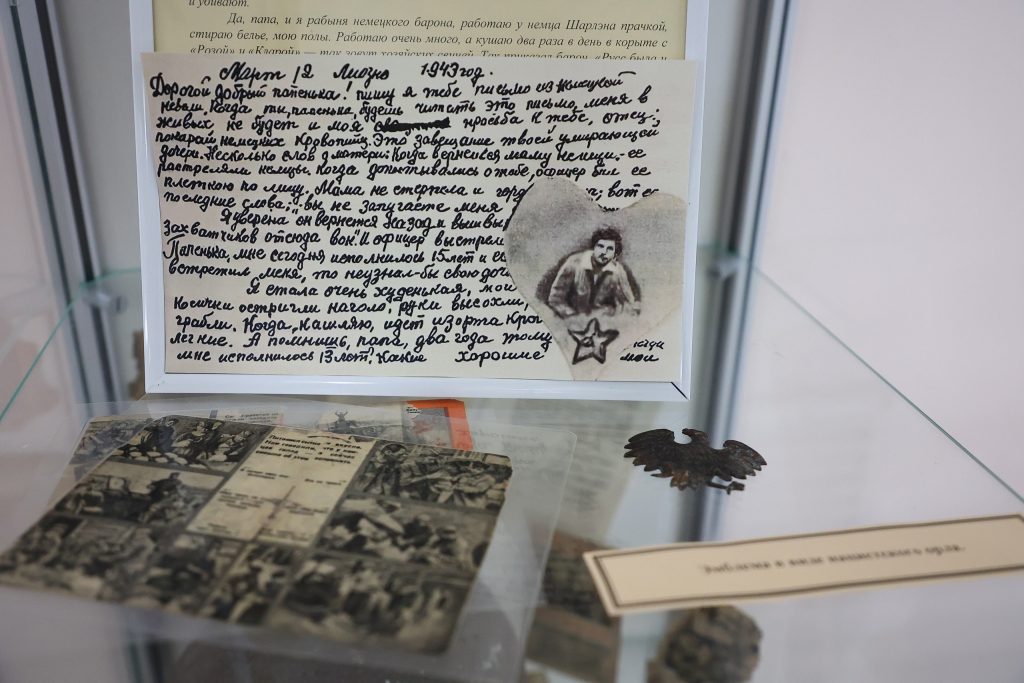 и убивают.
Да, папа, и я рабыня немецкого барона, работаю у немца Шарлэна прачкой,
стираю белье, мою полы. Работаю очень много, а кушаю два раза в день в корыте с
«Розой» и «Кларой» — так зовут хозяйских свиней. Так приказал барон. «Русс была и
Март 12 Лиозно 1943 год.
Дорогой добрый папенька! пишу я тебе письмо из немецкой
неволи. Когда ты, папенька, будешь читать это письмо, меня в
живых не будет и моя просьба к тебе, отец:
покарай немецких кровопийц. Это завещание твоей умирающей
дочери. Несколько слов о матери: Когда вернешься маму не ищи. ее
растреляли немцы. Когда допытывались о тебе, офицер бил ее
плеткою по лицу. Мама не стерпела и горд а; вот ее
последние слова; "вы не запугаете меня
Я уверена он вернется назад и вышвы
Захватчиков отсюда вон". И офицер выстрел
Папенька, мне сегодня исполнилось 15 лет и ес
встретил меня, то неузнал-бы свою доч
Я стала очень худенькая, мои
Косички остригли наголо, руки высохли,
грабли. Когда, кашляю, идет изорта кро
легкие. А помнишь, папа, два года тому
мне исполнилось 13 лет? Какие хорошие мои
Эмблема в виде нацистского орла.